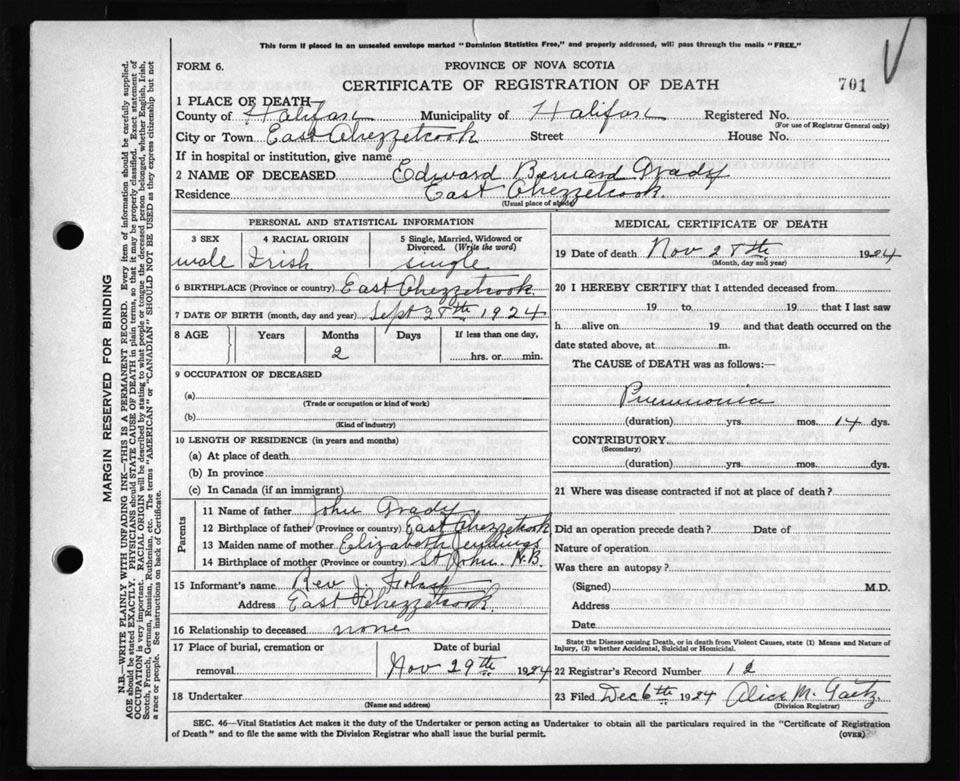 This form if placed in an unsealed envelope marked "Dominion Statistics Free," and properly addressed, will pass through the mails "FREE."
FORM 6.
PROVINCE OF NOVA SCOTIA
CERTIFICATE OF REGISTRATION OF DEATH
701
1 PLACE OF DEATH
County of Halifax Municipality of Halifax Registered No.
(For use of Registrar General only)
City or Town East Chezzetcook Street House No.
If in hospital or institution, give name
2 NAME OF DECEASED Edward Bernard Grady
Residence East Chezzetcook.
(Usual place of abode)
PERSONAL AND STATISTICAL INFORMATION
3 SEX 4 RACIAL ORIGIN 5 Single, Married, Widowed or Divorced. (Write the word)
male Irish single
6 BIRTHPLACE (Province or country) East Chezzetcook
7 DATE OF BIRTH (month, day and year) Sept 28th 1924
8 AGE Years Months Days If less than one day,
2 hrs. or min.
9 OCCUPATION OF DECEASED
(a)
(Trade or occupation or kind of work)
(b)
(Kind of industry)
10 LENGTH OF RESIDENCE (in years and months)
(a) At place of death
(b) In province
(c) In Canada (if an immigrant)
Parents
11 Name of father John Grady
12 Birthplace of father (Province or country) East Chezzetcook
13 Maiden name of mother Elizabeth Jennings
14 Birthplace of mother (Province or country) St John. N.B.
15 Informant's name Rev J.
Address East Chezzetcook.
16 Relationship to deceased none
17 Place of burial, cremation or Date of burial
removal Nov 29th 1924
18 Undertaker
(Name and address)
MEDICAL CERTIFICATE OF DEATH
19 Date of death Nov 28th 1924
(Month, day and year)
20 I HEREBY CERTIFY that I attended deceased from
19 to 19 that I last saw
h alive on 19 and that death occurred on the
date stated above, at m.
The CAUSE of DEATH was as follows:—
Pneumonia
(duration) yrs. mos. 14 dys.
CONTRIBUTORY
(Secondary)
(duration) yrs. mos. dys.
21 Where was disease contracted if not at place of death?
Did an operation precede death? Date of
Nature of operation
Was there an autopsy?
(Signed) M.D.
Address
Date
State the Disease causing Death, or in death from Violent Causes, state (1) Means and Nature of
Injury, (2) whether Accidental, Suicidal or Homicidal.
22 Registrar's Record Number 12
23 Filed Dec 6th 1924 Alice M. Gaetz
(Division Registrar)
SEC. 46—Vital Statistics Act makes it the duty of the Undertaker or person acting as Undertaker to obtain all the particulars required in the "Certificate of Registration
of Death" and to file the same with the Division Registrar who shall issue the burial permit.
(OVER)
MARGIN RESERVED FOR BINDING
N.B.—WRITE PLAINLY WITH UNFADING INK—THIS IS A PERMANENT RECORD. Every item of information should be carefully supplied.
AGE should be stated EXACTLY. PHYSICIANS should STATE CAUSE OF DEATH in plain terms, so that it may be properly classified. Exact statement of
OCCUPATION is very important. RACIAL ORIGIN will be described by stating to what people or tongue the deceased person belonged, whether English, Irish,
Scotch, French, German, Russian, Ruthenian, etc. The terms "AMERICAN" or "CANADIAN" SHOULD NOT BE USED as they express citizenship but not
a race or people. See instructions on back of Certificate.